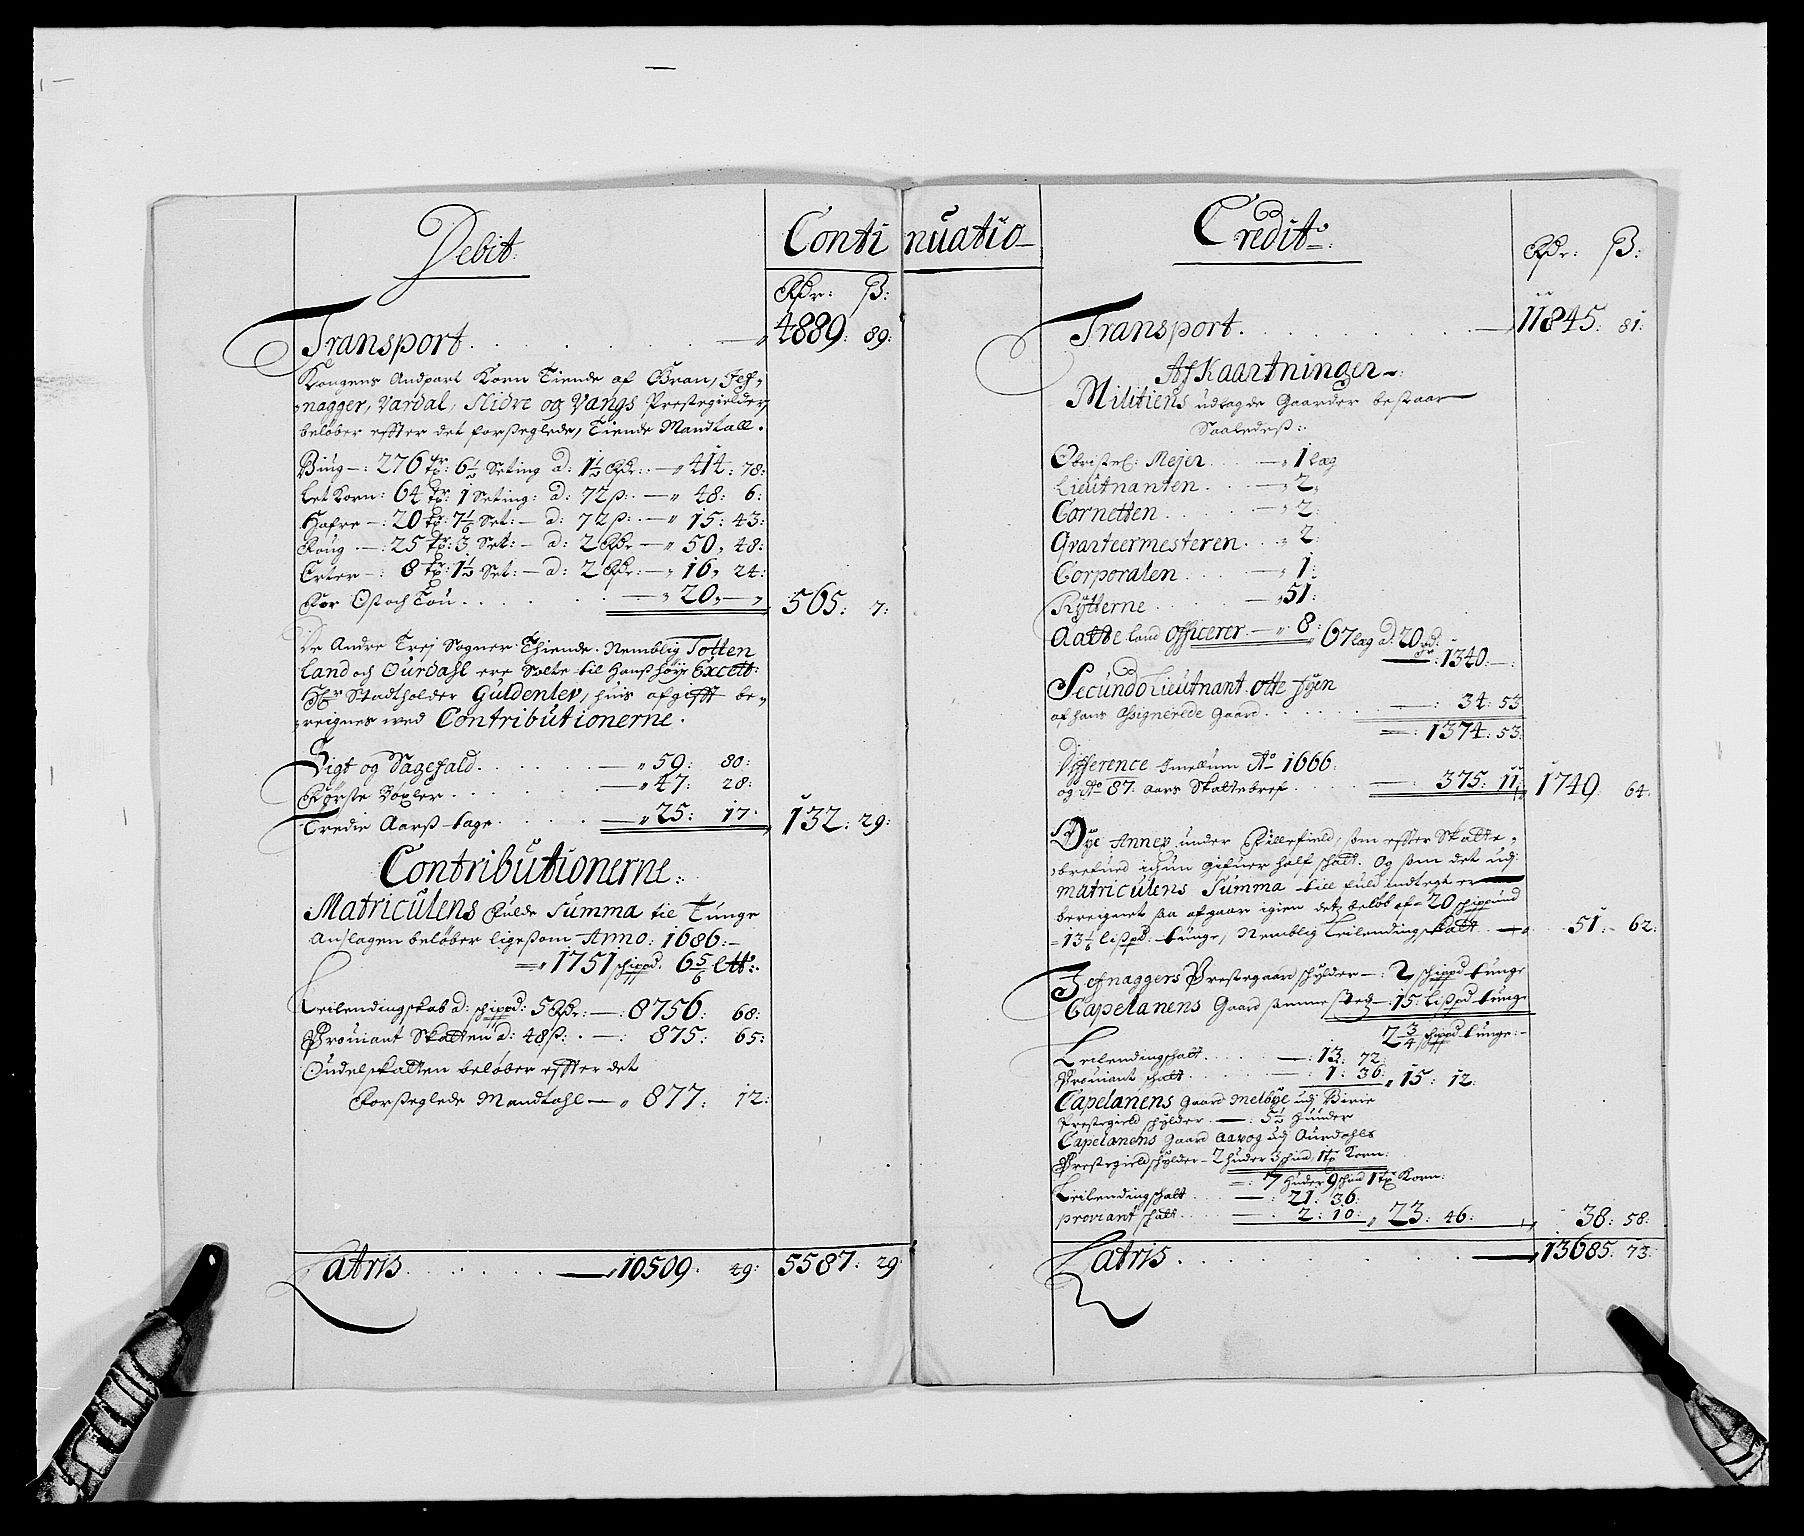 Debit:
Continuatio
Rdr: ß:
Transport 4889: 89:
Kongens Andpart Korn Tiende af Gran, Jef-
nagger, Vardal, Slidre og Vangs Prestegielder,
beløber effter det forseglede, Tiende Mandtall.
Biug —: 276 tr: 6½ Seting à: 1½ Rdr: — 414: 78:
Let Korn: 64 tr: 1 Seting: à: 72 ß: — 48: 6:
Hafre —: 20 tr: 7⅙ Set: — à: 72 ß: — 15: 43:
Roug —: 25 tr: 3 Set: — à: 2 Rdr — 50, 48:
Erter —: 8 tr: 1½ Set: — à: 2 Rdr: — 16, 24:
For Ost och Tou — 20, — 565: 7:
De Andre Trej Sogner Thiende. Nemblig Totten
Land och Ourdahl ere Solte til Hans høye Excell:
Hr Stadtholder Guldenlev, huis afgifft be-
reignes ved Contributionerne.
Sigt og Sagefald — 59: 80:
Første Boxler — 47: 28:
Tredie Aarß tage — 25: 17: 132: 29:
Contributionerne:
Matriculens fulde Summa til Tunge
Anslagen beløber ligesom Anno: 1686: —
1751 schippd. 6⅚ Ltt:
Leilendingskab à: schippd: 5 Rdr: —: 8756: 68:
Proviant Skatten à: 48 ß: —: 875: 65:
Oudelskatten beløber effter det
Forseglede Mandtahl — 877: 12:
Latris — 10509: 49: 5587: 29:
Credit:
Rdr: ß:
Transport — 11845: 81:
Afkaartninger:
Militiens udlagde Gaarder bestaar
Saaledeß:
Obristel: Mejer — 1 læg
Lieutnanten — 2,
Cornetten — 2:
Qvarteermesteren — 2:
Corporalen — 1:
Rytterne — 51:
Aatte land officerer — 8: 67 læg à: 20 rd:
1340: —:
Secundo Lieutnant Otte Jyen
af hans Assignerede Gaard — 34: 53
1374: 53:
Difference Imellum Ao 1666:
og Ao 87: aars Skattebref — 375: 11: 1749: 64:
Øye Annex under Fillefield, som effter Skatte-
brefued ichun gifuer half schatt. Og som det udj
matriculens Summa till fuld indtegt er
bereignet saa afgaar igien detz beløb af 20 schippund
13⅙ lißpd: tunge, Nemblig Leilendingskatt — 51: 62:
Jefnaggers Prestegaard schylder —: 2 schippd tunge
Capelanens Gaard sammesteg —: 15: lißpd tunge
2¾ schippd tunge: —
Leilendingschatt —: 13: 72:
Proviant schatt — 1: 36: 15: 12:
Capelanens Gaard Melbye udj Birie
Prestegield schylder —: 5½ Huuder
Capelanens Gaard Aavog udj Aurdahls
Prestegield schylder — 2 huder 3 schind 1 tr Korn:
7 huder 9 schind 1 tr Korn:
Leilendingschatt — 21: 36:
proviant schatt — 2: 10: 23: 46: 38: 58:
Latris — 13685: 73: